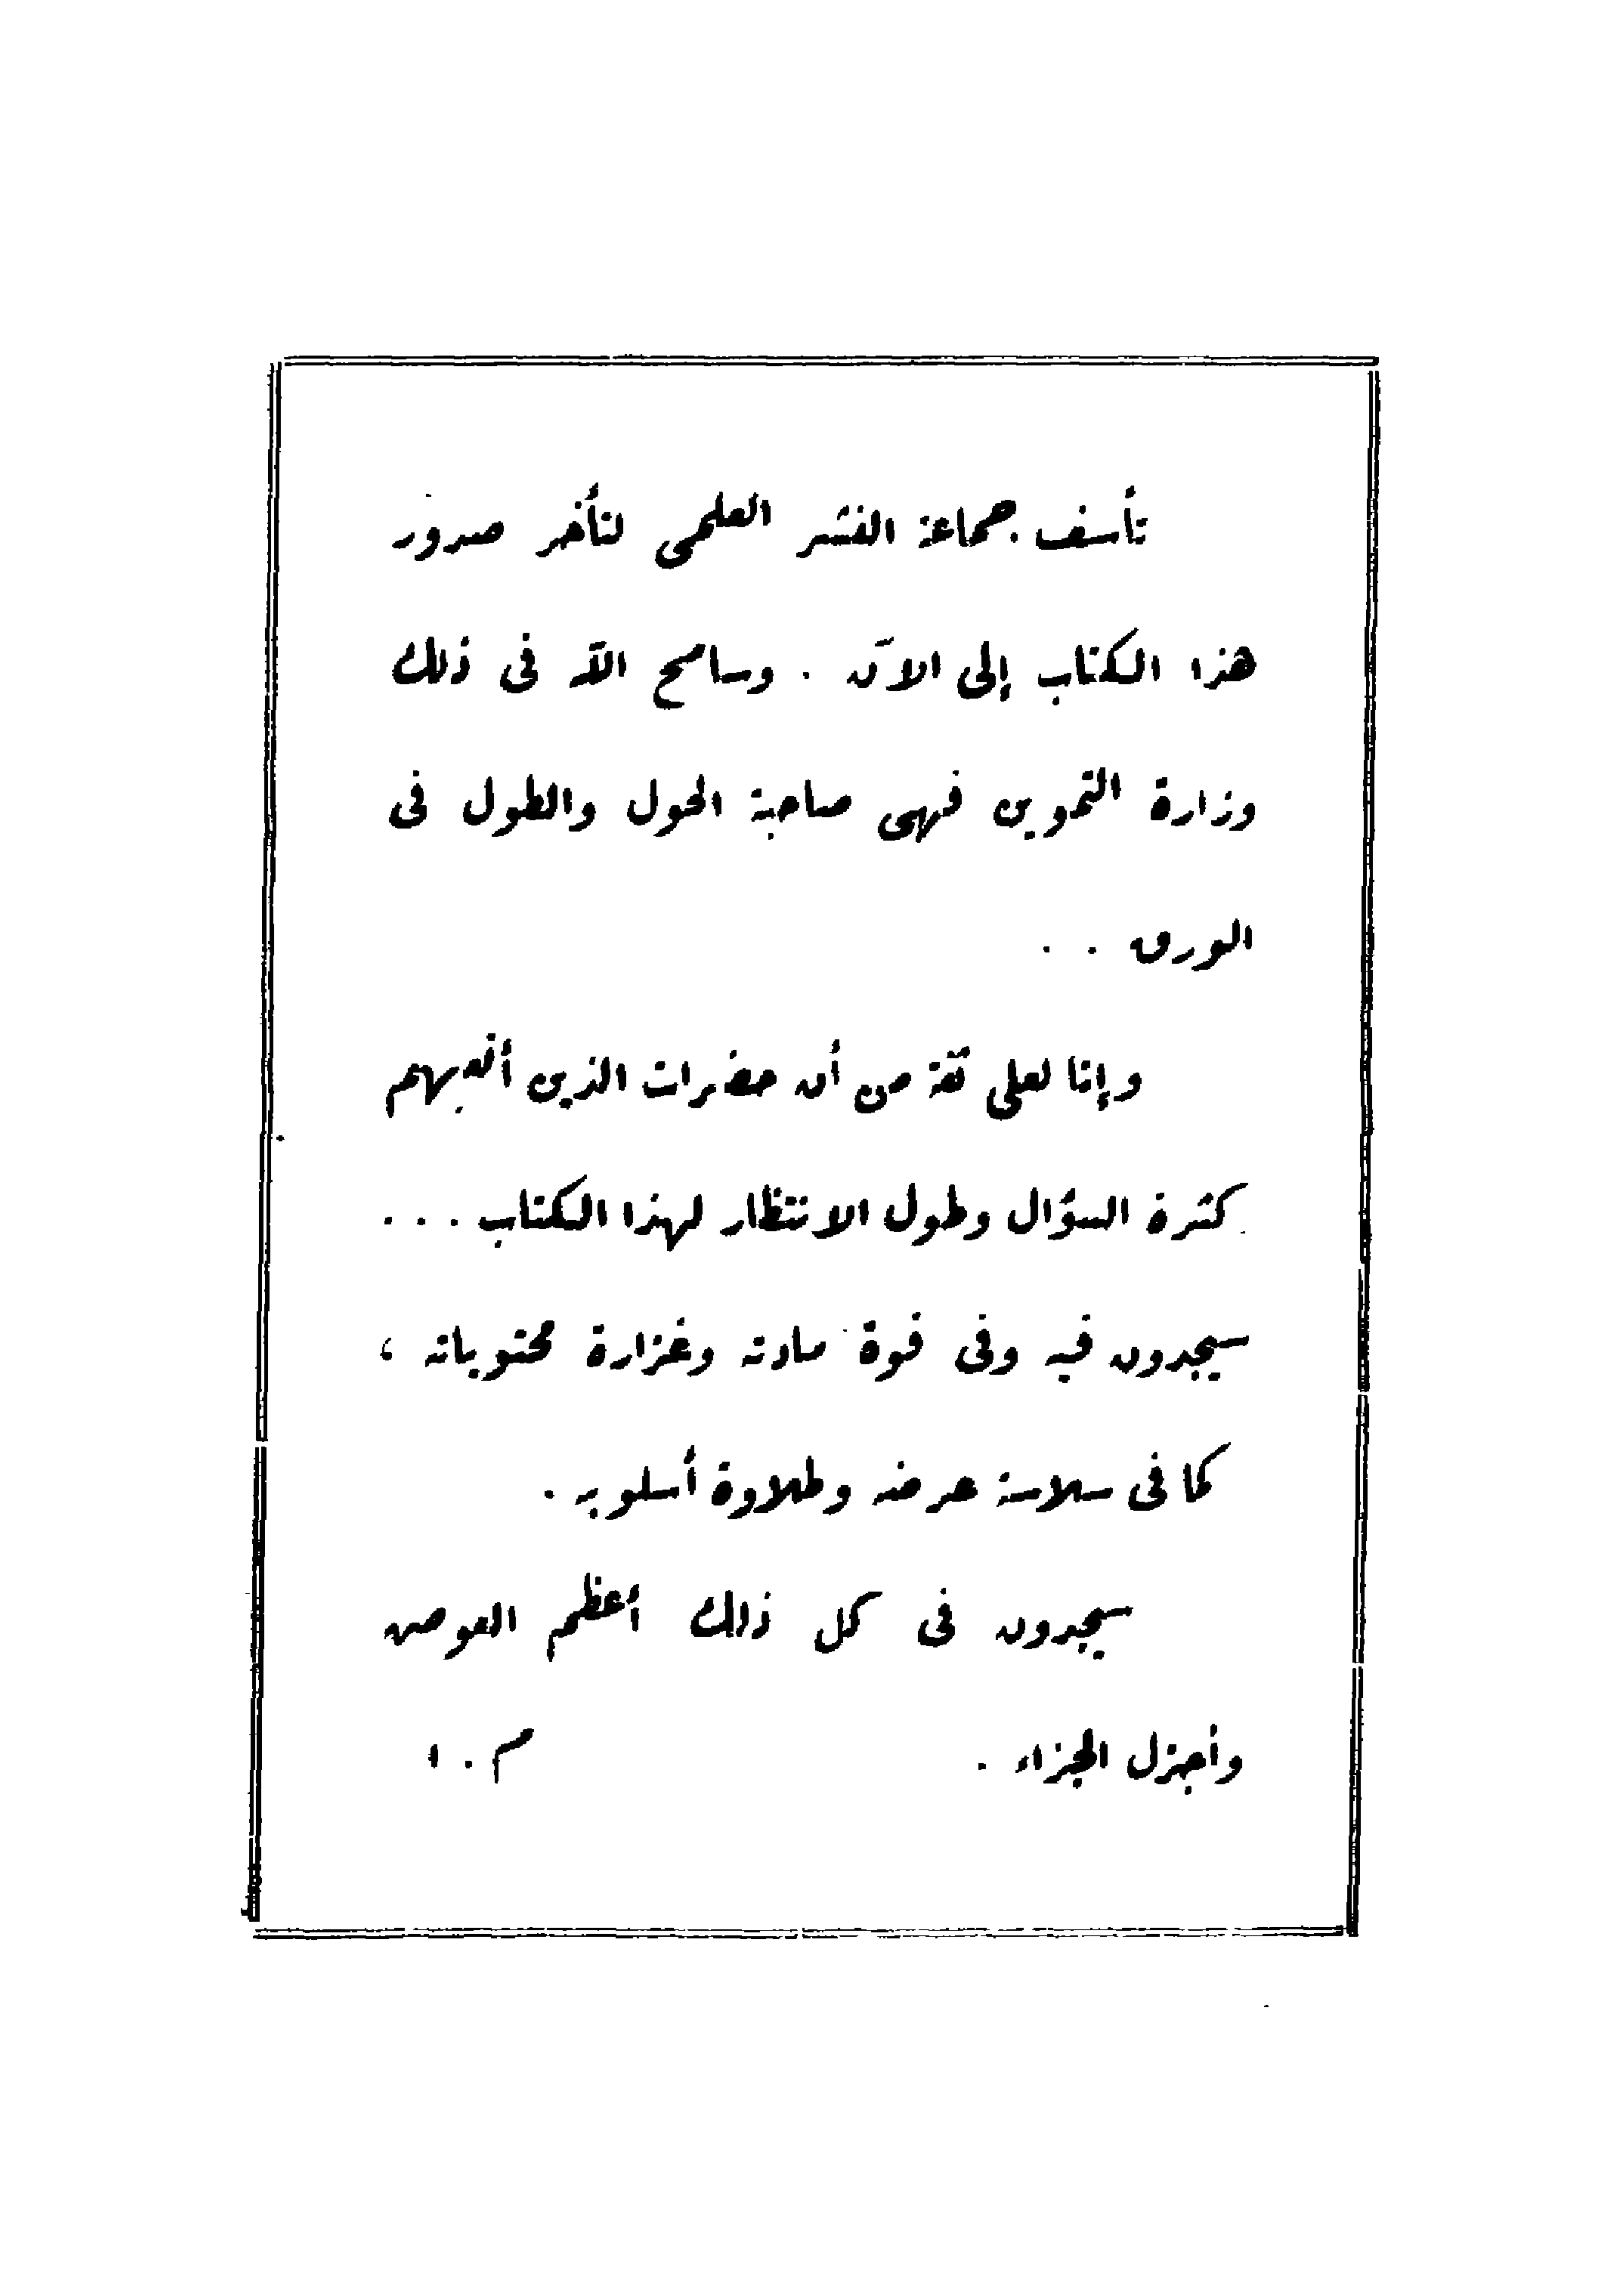 تأسف جماعة النشر العلمى لتأخر صدور
هذا الكتاب إلى الآن . وسامح الله فى ذلك
وزارة التموين فهى صاحبة الحول والطول فى
الورق . .
وإنا لعلى ثقة من أن حضرات الذين أتعبهم
كثرة السؤال وطول الانتظار لهذا الكتاب . . .
سيجدون فيه وفى قوة مادته وغزارة محتوياته ،
كما فى سلاسة عرضه وطلاوة أسلوبه .
سيجدون فى كل ذلك أعظم العوض
وأجزل الجزاء . م . ا